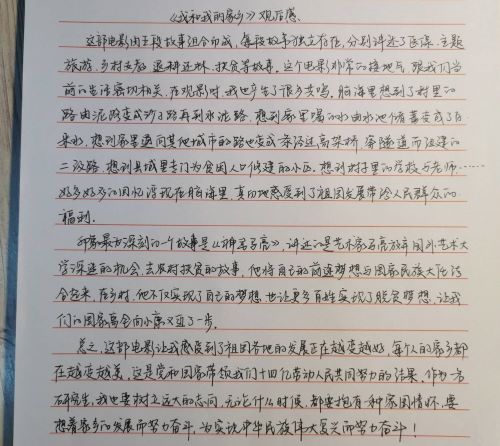 《我和我的家乡》观后感
这部电影由五段故事组合而成，每段故事独立存在，分别讲述了医保、主题
旅游、乡村支教、退耕还林、扶贫等故事。这个电影非常的接地气，跟我们当
前的生活密切相关，在观影时，我也产生了很多共鸣。脑海里想到了村里的
路由泥路变成沙子路再到水泥路，想到家里喝的水由水池储蓄变成了自
来水，想到家里通向其他城市的路也变成
二级路，想到县城里专门为贫困人口修建的小区，想到村子里的学校与老师……
好多好多的回忆浮现在脑海里，真切地感受到了祖国发展带给人民群众的
福利。
最为深刻的一个故事是《神笔马亮》，讲述的是艺术家马亮放弃国外艺术大
学深造的机会，去农村扶贫的故事，他将自己的前途梦想与国家民族大任结
合起来，在乡村，他不仅实现了自己的梦想，也让更多百姓实现了脱贫梦想，让我
们的国家离全面小康又近了一步。
总之，这部电影让我感受到了祖国各地的发展正在越变越好，每个人的家乡都
在越变越美，这是党和国家带领我们十四亿劳动人民共同努力的结果，作为一名
研究生，我也要树立远大的志向，无论什么时候，都要抱有一种家国情怀，要
想着家乡的发展而努力奋斗，为实现中华民族伟大复兴而努力奋斗！